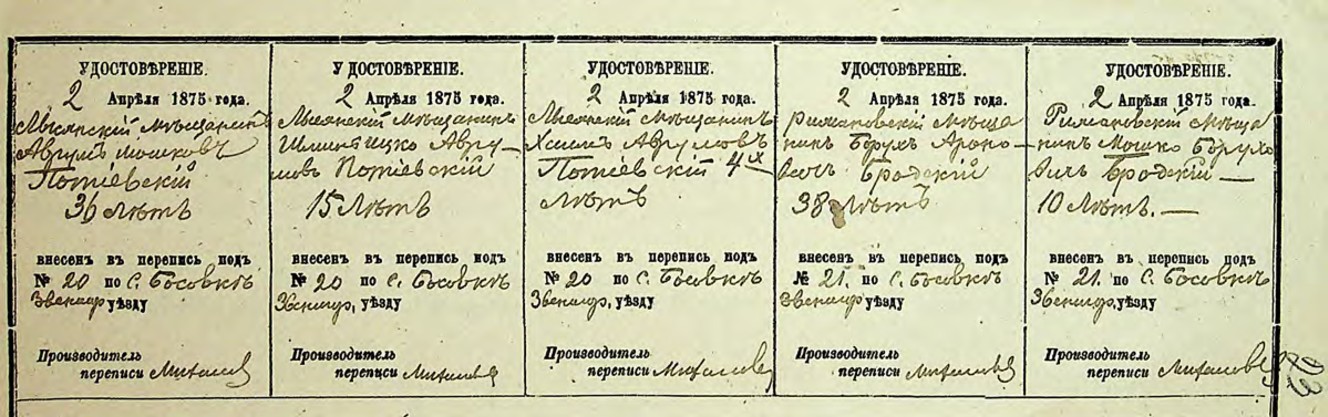 УДОСТОВѢРЕНІЕ.
2 Апрѣля 1875 года.
Лысянскій мѣщанинъ
Аврумъ Мошковъ
Потіевскій
36 лѣтъ
внесенъ въ перепись подъ
№ 20 по с. Босовкѣ
Звениг. уѣзду
Производитель
переписи
УДОСТОВѢРЕНІЕ.
2 Апрѣля 1875 года.
Лысянскій мѣщанинъ
Авру–
мовъ Потіевскій
15 лѣтъ
внесенъ въ перепись подъ
№ 20 по с. Босовкѣ
Звениг. уѣзду
Производитель
переписи
УДОСТОВѢРЕНІЕ.
2 Апрѣля 1875 года.
Лысянскій мѣщанинъ
Аврумовъ
Потіевскій 4х
лѣтъ
внесенъ въ перепись подъ
№ 20 по с. Босовкѣ
Звениг. уѣзду
Производитель
переписи
УДОСТОВѢРЕНІЕ.
2 Апрѣля 1875 года.
мѣща
нинъ Борухъ Ароно–
вичъ Бродскій
38 лѣтъ
внесенъ въ перепись подъ
№ 21. по с. Босовкѣ
Звениг. уѣзду
Производитель
переписи
УДОСТОВѢРЕНІЕ.
2 Апрѣля 1875 года.
мѣща
нинъ Мошко Борухо
вичъ Бродскій —
10 лѣтъ. —
внесенъ въ перепись подъ
№ 21. по с. Босовкѣ
Звениг. уѣзду
Производитель
переписи